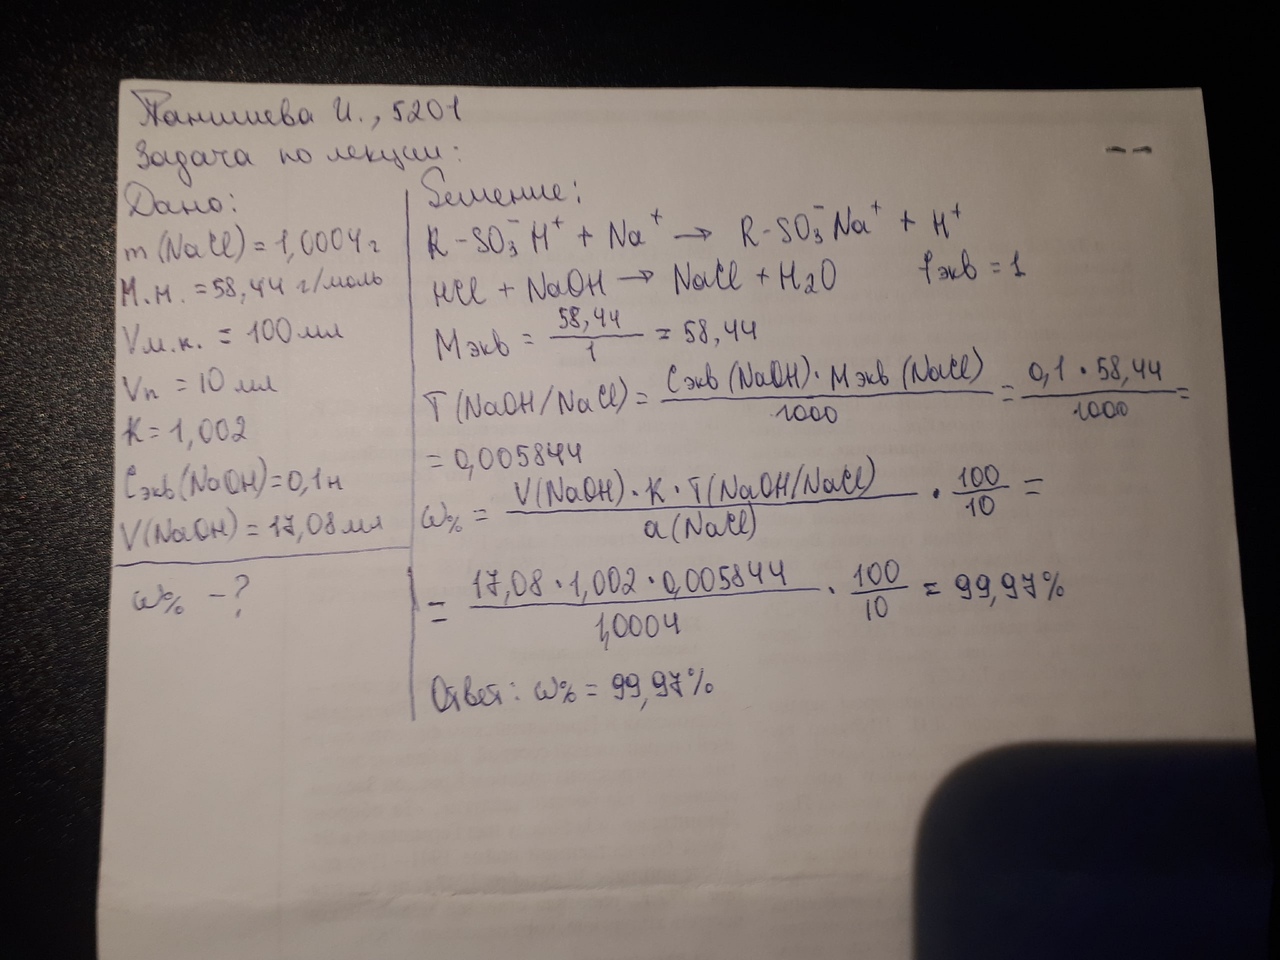 Паншиева И., 5201
Задача по лекции:
Дано:
m(NaCl) = 1,0004 г
М.м. = 58,44 г/моль
Vм.к. = 100 мл
Vп = 10 мл
K = 1,002
Cэкв(NaOH) = 0,1 н
V(NaOH) = 17,08 мл
ω% - ?
Решение:
R-SO₃⁻H⁺ + Na⁺ → R-SO₃⁻Na⁺ + H⁺
HCl + NaOH → NaCl + H₂O fэкв = 1
Mэкв = 58,44/1 = 58,44
T(NaOH/NaCl) = Cэкв(NaOH)·Mэкв(NaCl)/1000 = 0,1·58,44/1000 =
= 0,005844
ω% = V(NaOH)·K·T(NaOH/NaCl)/a(NaCl) · 100/10 =
= 17,08·1,002·0,005844/1,0004 · 100/10 = 99,97%
Ответ: ω% = 99,97%